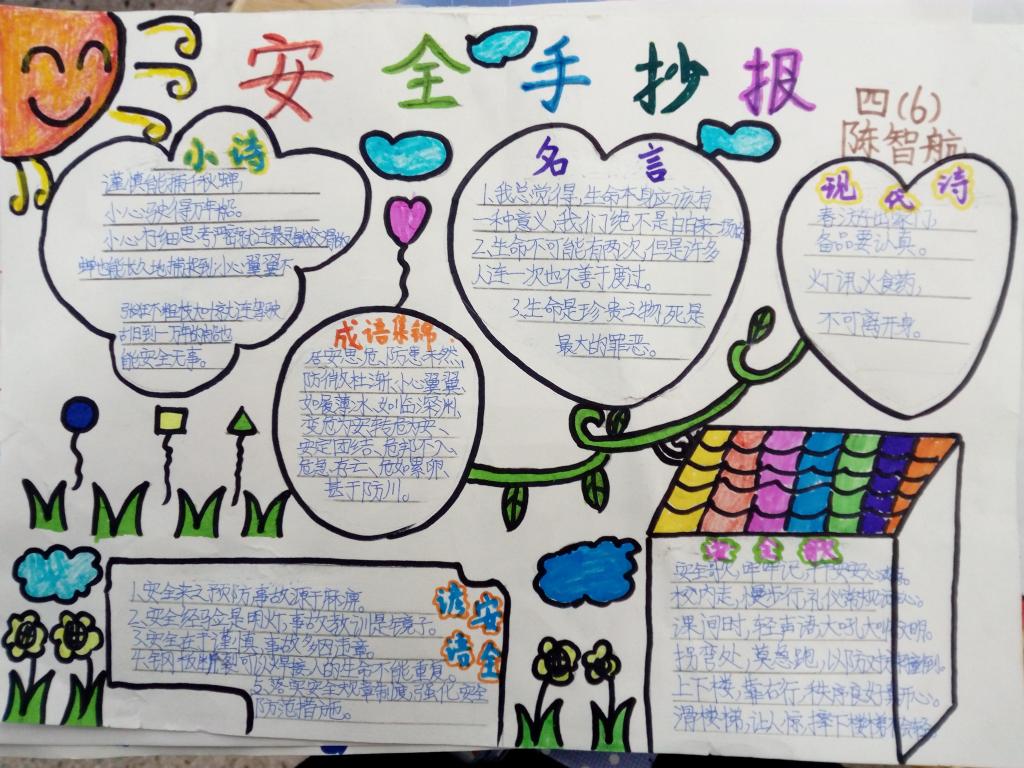 安全手抄报
四(6)
陈智航
小诗
谨慎能捕千秋蝉,
小心驶得万年船。
小心仔细思考严密就连最灵敏
蝉也能长久地捕捉到小心翼翼不
到一万年的船也
能安全无事。
名言
1.我总觉得,生命本身应该有
一种意义,我们绝不是白白来一场
2.生命不可能有两次,但是许多
人连一次也不善于度过。
3.生命是珍贵之物,死是
最大的罪恶。
现代诗
备品要认真。
火食药,
不可离开身。
成语集锦
居安思危、防患未然、
防微杜渐、小心翼翼、
如履薄冰、如临深渊、
变危为安、转危为安、
安定团结、危邦不入、
危急存亡、危如累卵、
甚于防川。
安全谚语
1.安全来之预防,事故源于麻痹。
2.安全经验是明灯,事故教训是镜子。
3.安全在于谨慎,事故
4.钢板断裂可以焊接,人的生命不能重复。
5.落实安全规章制度,强化安全
防范措施。
安全歌
安全歌,牢牢记,
校内走,慢步行,礼仪常规
课间时,轻声语,大吼大叫
拐弯处,莫急跑,以防对方
上下楼,靠右行,秩序良好
滑楼梯,让人惊,摔下楼梯